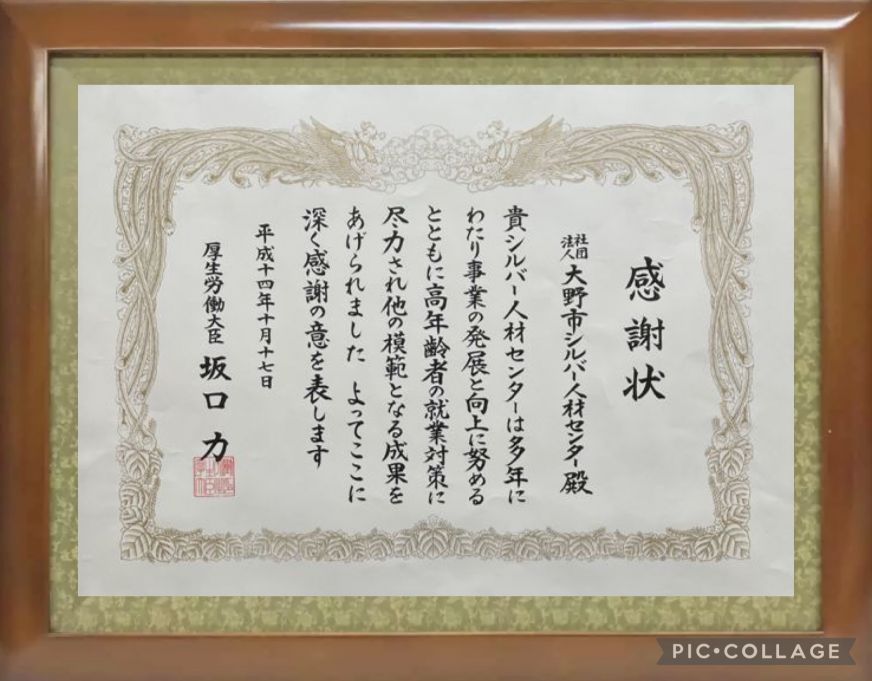 感謝状
社団法人 大野市シルバー人材センター殿
貴シルバー人材センターは多年に
わたり事業の発展と向上に努める
とともに高年齢者の就業対策に
尽力され他の模範となる成果を
あげられました よってここに
深く感謝の意を表します
平成十四年十月十七日
厚生労働大臣 坂口 力
PIC•COLLAGE